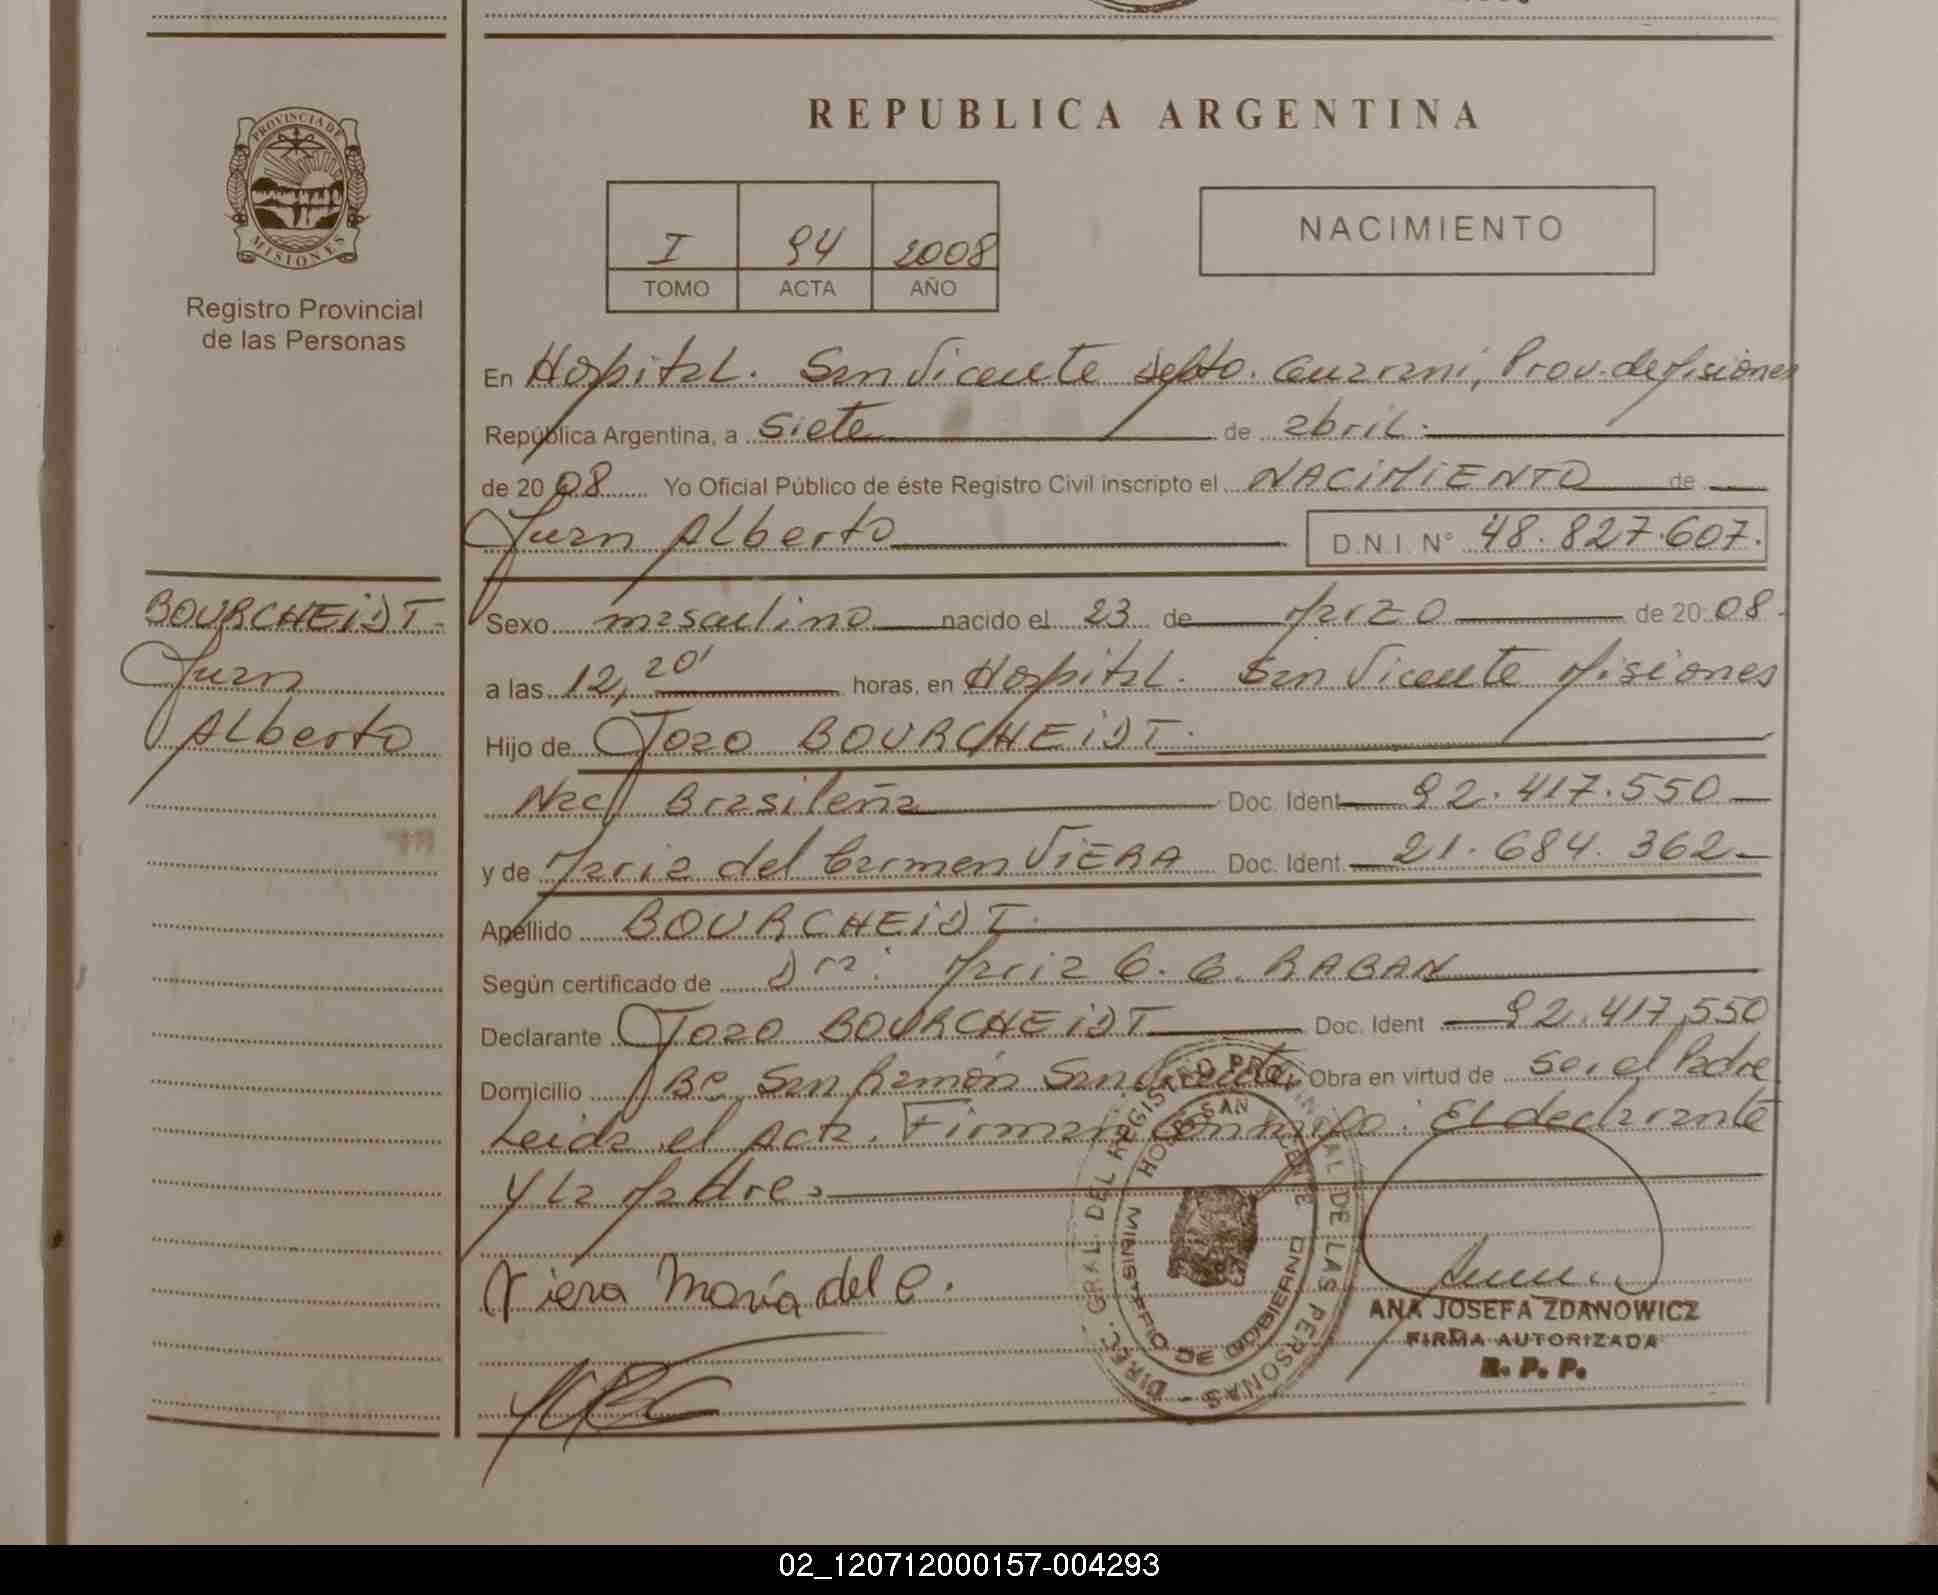 REPUBLICA ARGENTINA
PROVINCIA DE MISIONES
Registro Provincial
de las Personas
I 94 2008
TOMO ACTA AÑO
NACIMIENTO
En Hospital. San Vicente Depto. Guarani, Prov. de Misiones
República Argentina, a siete de abril.
de 2008 Yo Oficial Público de éste Registro Civil inscripto el NACIMIENTO de
Juan Alberto D.N.I. Nº 48.827.607.
BOURCHEIDT.
Juan
Alberto
Sexo masculino nacido el 23 de Marzo de 20 08.
a las 12,20' horas, en Hospital. San Vicente Misiones
Hijo de Joao BOURCHEIDT.
Nac Brasileña Doc. Ident 92.417.550
y de Maria del Carmen VIERA Doc. Ident. 21.684.362
Apellido BOURCHEIDT.
Según certificado de Dra: Maria C. C. RABAN
Declarante Joao BOURCHEIDT Doc. Ident 92.417,550
Domicilio Bº San Ramón San Vicente, Obra en virtud de ser el Padre
Leida el Acta. Firman conmigo: El declarante
y la Madre
Viera María del C.
DIREC. GRAL. DEL REGISTRO PROVINCIAL DE LAS PERSONAS -
HOSP. SAN VICENTE
MINISTERIO DE GOBIERNO
ANA JOSEFA ZDANOWICZ
FIRMA AUTORIZADA
R. P. P.
02_120712000157-004293